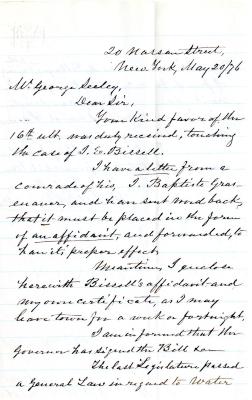 20 Nassau Street,
New York, May 20/76
Mr George Seeley,
Dear Sir,
Your kind favor of the
16th ult. was duly received, touching
the case of I. E. Bissell.
I have a letter from a
comrade of his, J. Baptiste
and have sent word back,
that it must be placed in the form
of an affidavit, and forwarded, to
have its proper effect.
Meantime, I enclose
herewith Bissell's affidavit and
my own certificate, as I may
leave town for a week or fortnight,
I am informed that the
Governor has signed the Bill
The last Legislature passed
a General Law in regard to Water